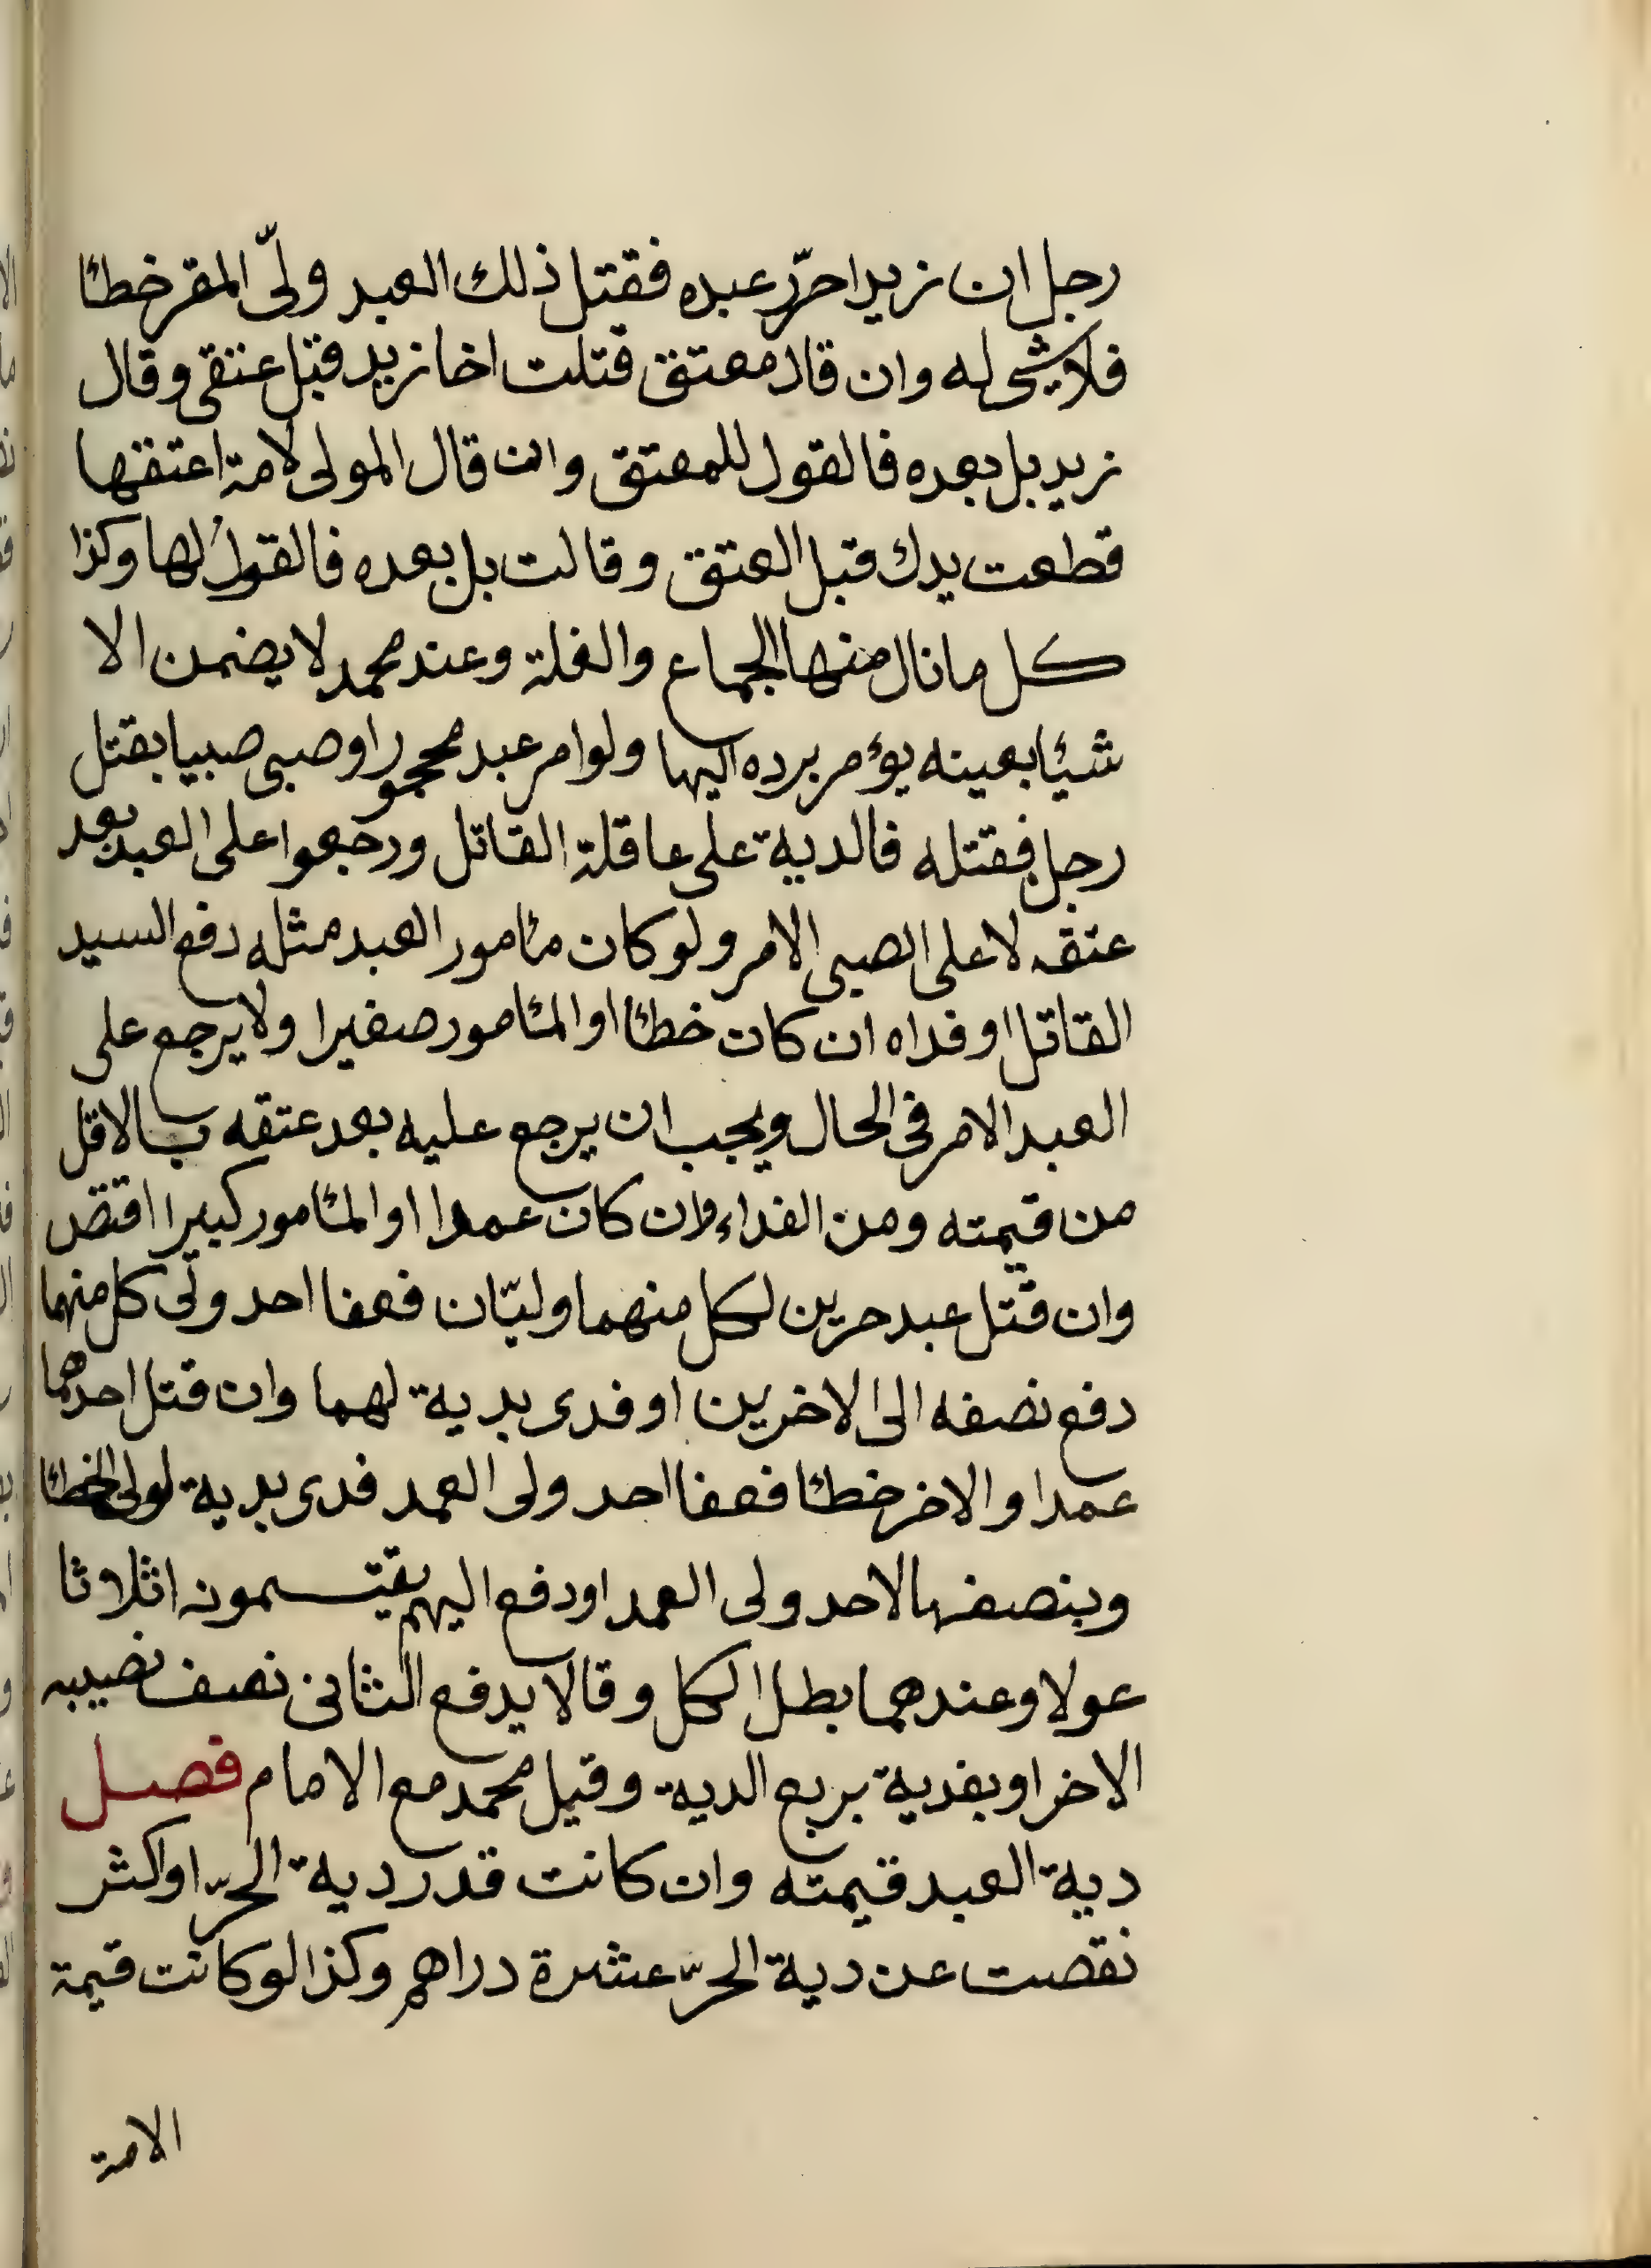 رجل ان زيدا حرّر عبده فقتل ذلك العبد ولىّ المقر خطئا
فلا شئ له وان قال معتق قتلت اخا زيد قبل عتقى وقال
زيد بل بعده فالقول للمعتق وان قال المولى لامة اعتقها
قطعت يدك قبل العتق وقالت بل بعده فالقول لها وكذا
كل ما نال منها الجماع والغلة وعند محمد لا يضمن الا
شيئا بعينه يؤمر برده اليها ولو امر عبد محجور او صبى صبيا بقتل
رجل فقتله فالدية على عاقلة القاتل ورجعوا على العبد بعد
عتقه لا على الصبى الامر ولو كان مئامور العبد مثله دفع السيد
القاتل او فداه ان كان خطئا او المئامور صغيرا ولا يرجع على
العبد الامر فى الحال ويجب ان يرجع عليه بعد عتقه بالاقل
من قيمته ومن الفداء وان كان عمدا او المئامور كبيرا اقتص
وان قتل عبد حرين لكل منهما وليّان فعفا احد ولى كل منهما
دفع نصفه الى الاخرين او فدى بدية لهما وان قتل احدهما
عمدا والاخر خطئا فعفا احد ولى العمد فدى بدية لولى الخطئا
وبنصفها لاحد ولى العمد او دفع اليهم يقتسمونه اثلاثا
عولا وعندهما بطل الكل وقالا يدفع الثانى نصف نصيبه
الاخر او بفدية بربع الدية وقيل محمد مع الامام فصل
دية العبد قيمته وان كانت قدر دية الحرّ او اكثر
نقصت عن دية الحرّ عشرة دراهم وكذا لو كانت قيمة
الامة